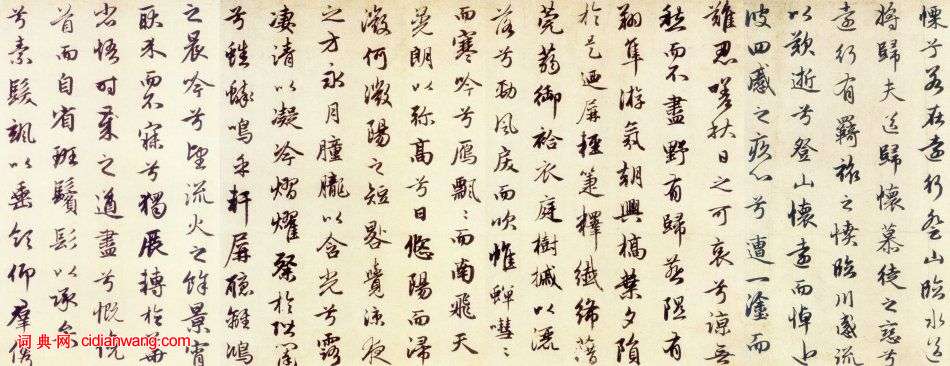 慄兮若在遠行登山臨水送
將歸夫送歸懷慕徒之戀兮
遠行有羈旅之憤臨川感流
以歎逝兮登山懷遠而悼近
彼四慼之疚心兮遭一塗而
難忍嗟秋日之可哀兮諒無
愁而不盡野有歸燕隰有
翔隼游氛朝興槁葉夕隕
於是迺屏輕箑釋纖絺藉
莞蒻御袷衣庭樹摵以灑
落兮勁風戾而吹帷蟬嘒〻
而寒吟兮雁飄〻而南飛天
晃朗以弥高兮日悠陽而浸
微何微陽之短晷覺涼夜
之方永月朣朧以含光兮露
淒清以凝冷熠燿粲於階闥
兮蟋蟀鳴乎軒屏聽離鴻
之晨吟兮望流火之餘景宵
耿介而不寐兮獨展轉於華
省悟時歲之遒盡兮慨俛
首而自省斑鬢髟以承弁
兮素髮颯以垂領仰群儁
词典网 cidianwang.com